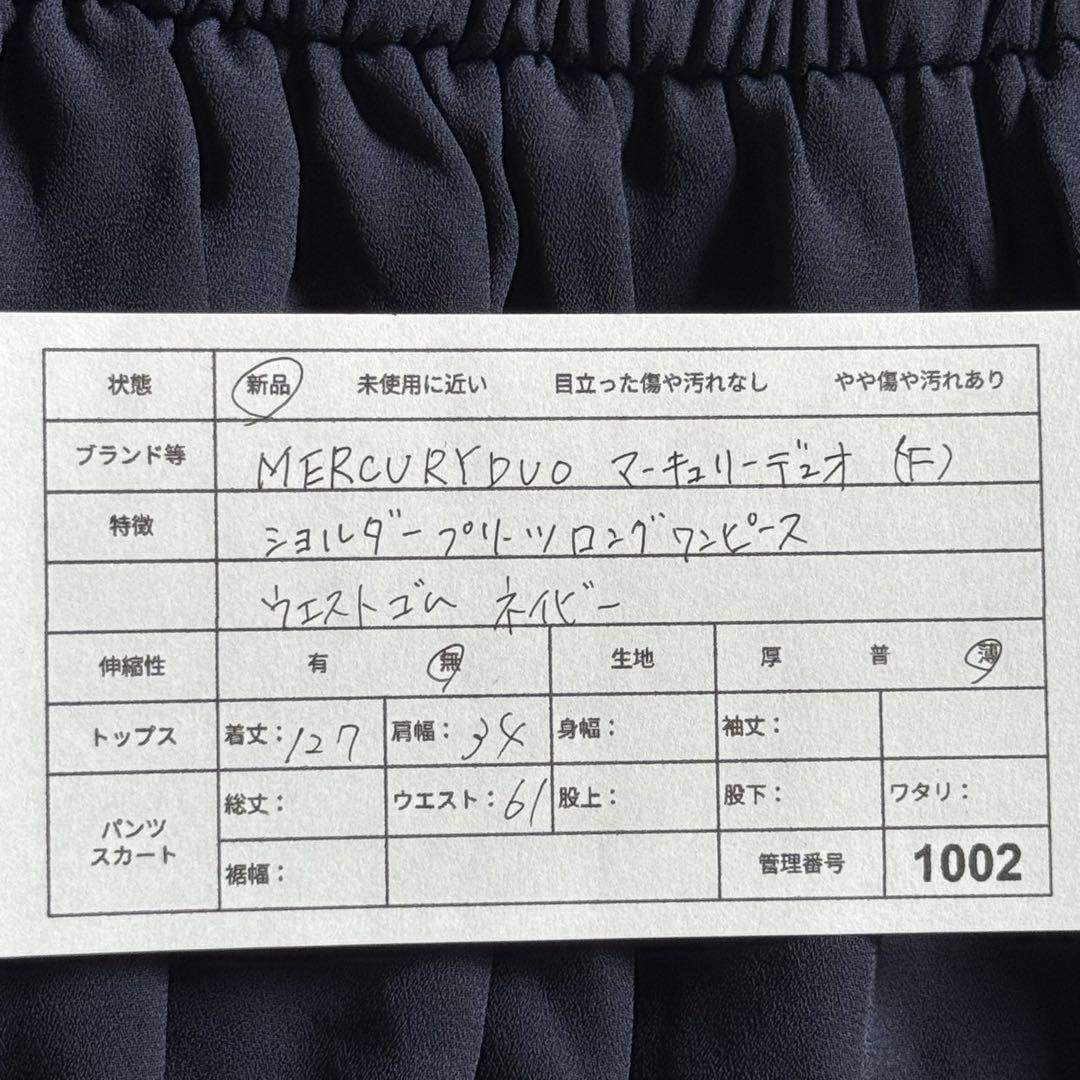 状態 新品 未使用に近い 目立った傷や汚れなし やや傷や汚れあり
ブランド等 MERCURYDUO マーキュリーデュオ (F)
特徴 ショルダープリーツロングワンピース
ウエストゴム ネイビー
伸縮性 有 無 生地 厚 普 薄
トップス 着丈：127 肩幅：34 身幅： 袖丈：
パンツ スカート 総丈： ウエスト：61 股上： 股下： ワタリ：
裾幅： 管理番号 1002